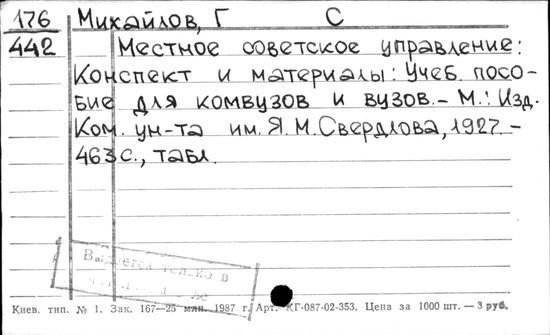 176 Михайлов, Г С
442 Местное советское управление:
Конспект и материалы: Учеб. посо-
бие для комвузов и вузов. – М.: Изд.
Ком. ун-та им. Я. М. Свердлова, 1927. –
463 с., табл.
только в
Киев. тип. № 1. Зак. 167—25 млн. 1987 г. Арт. КГ-087-02-353. Цена за 1000 шт. — 3 руб.